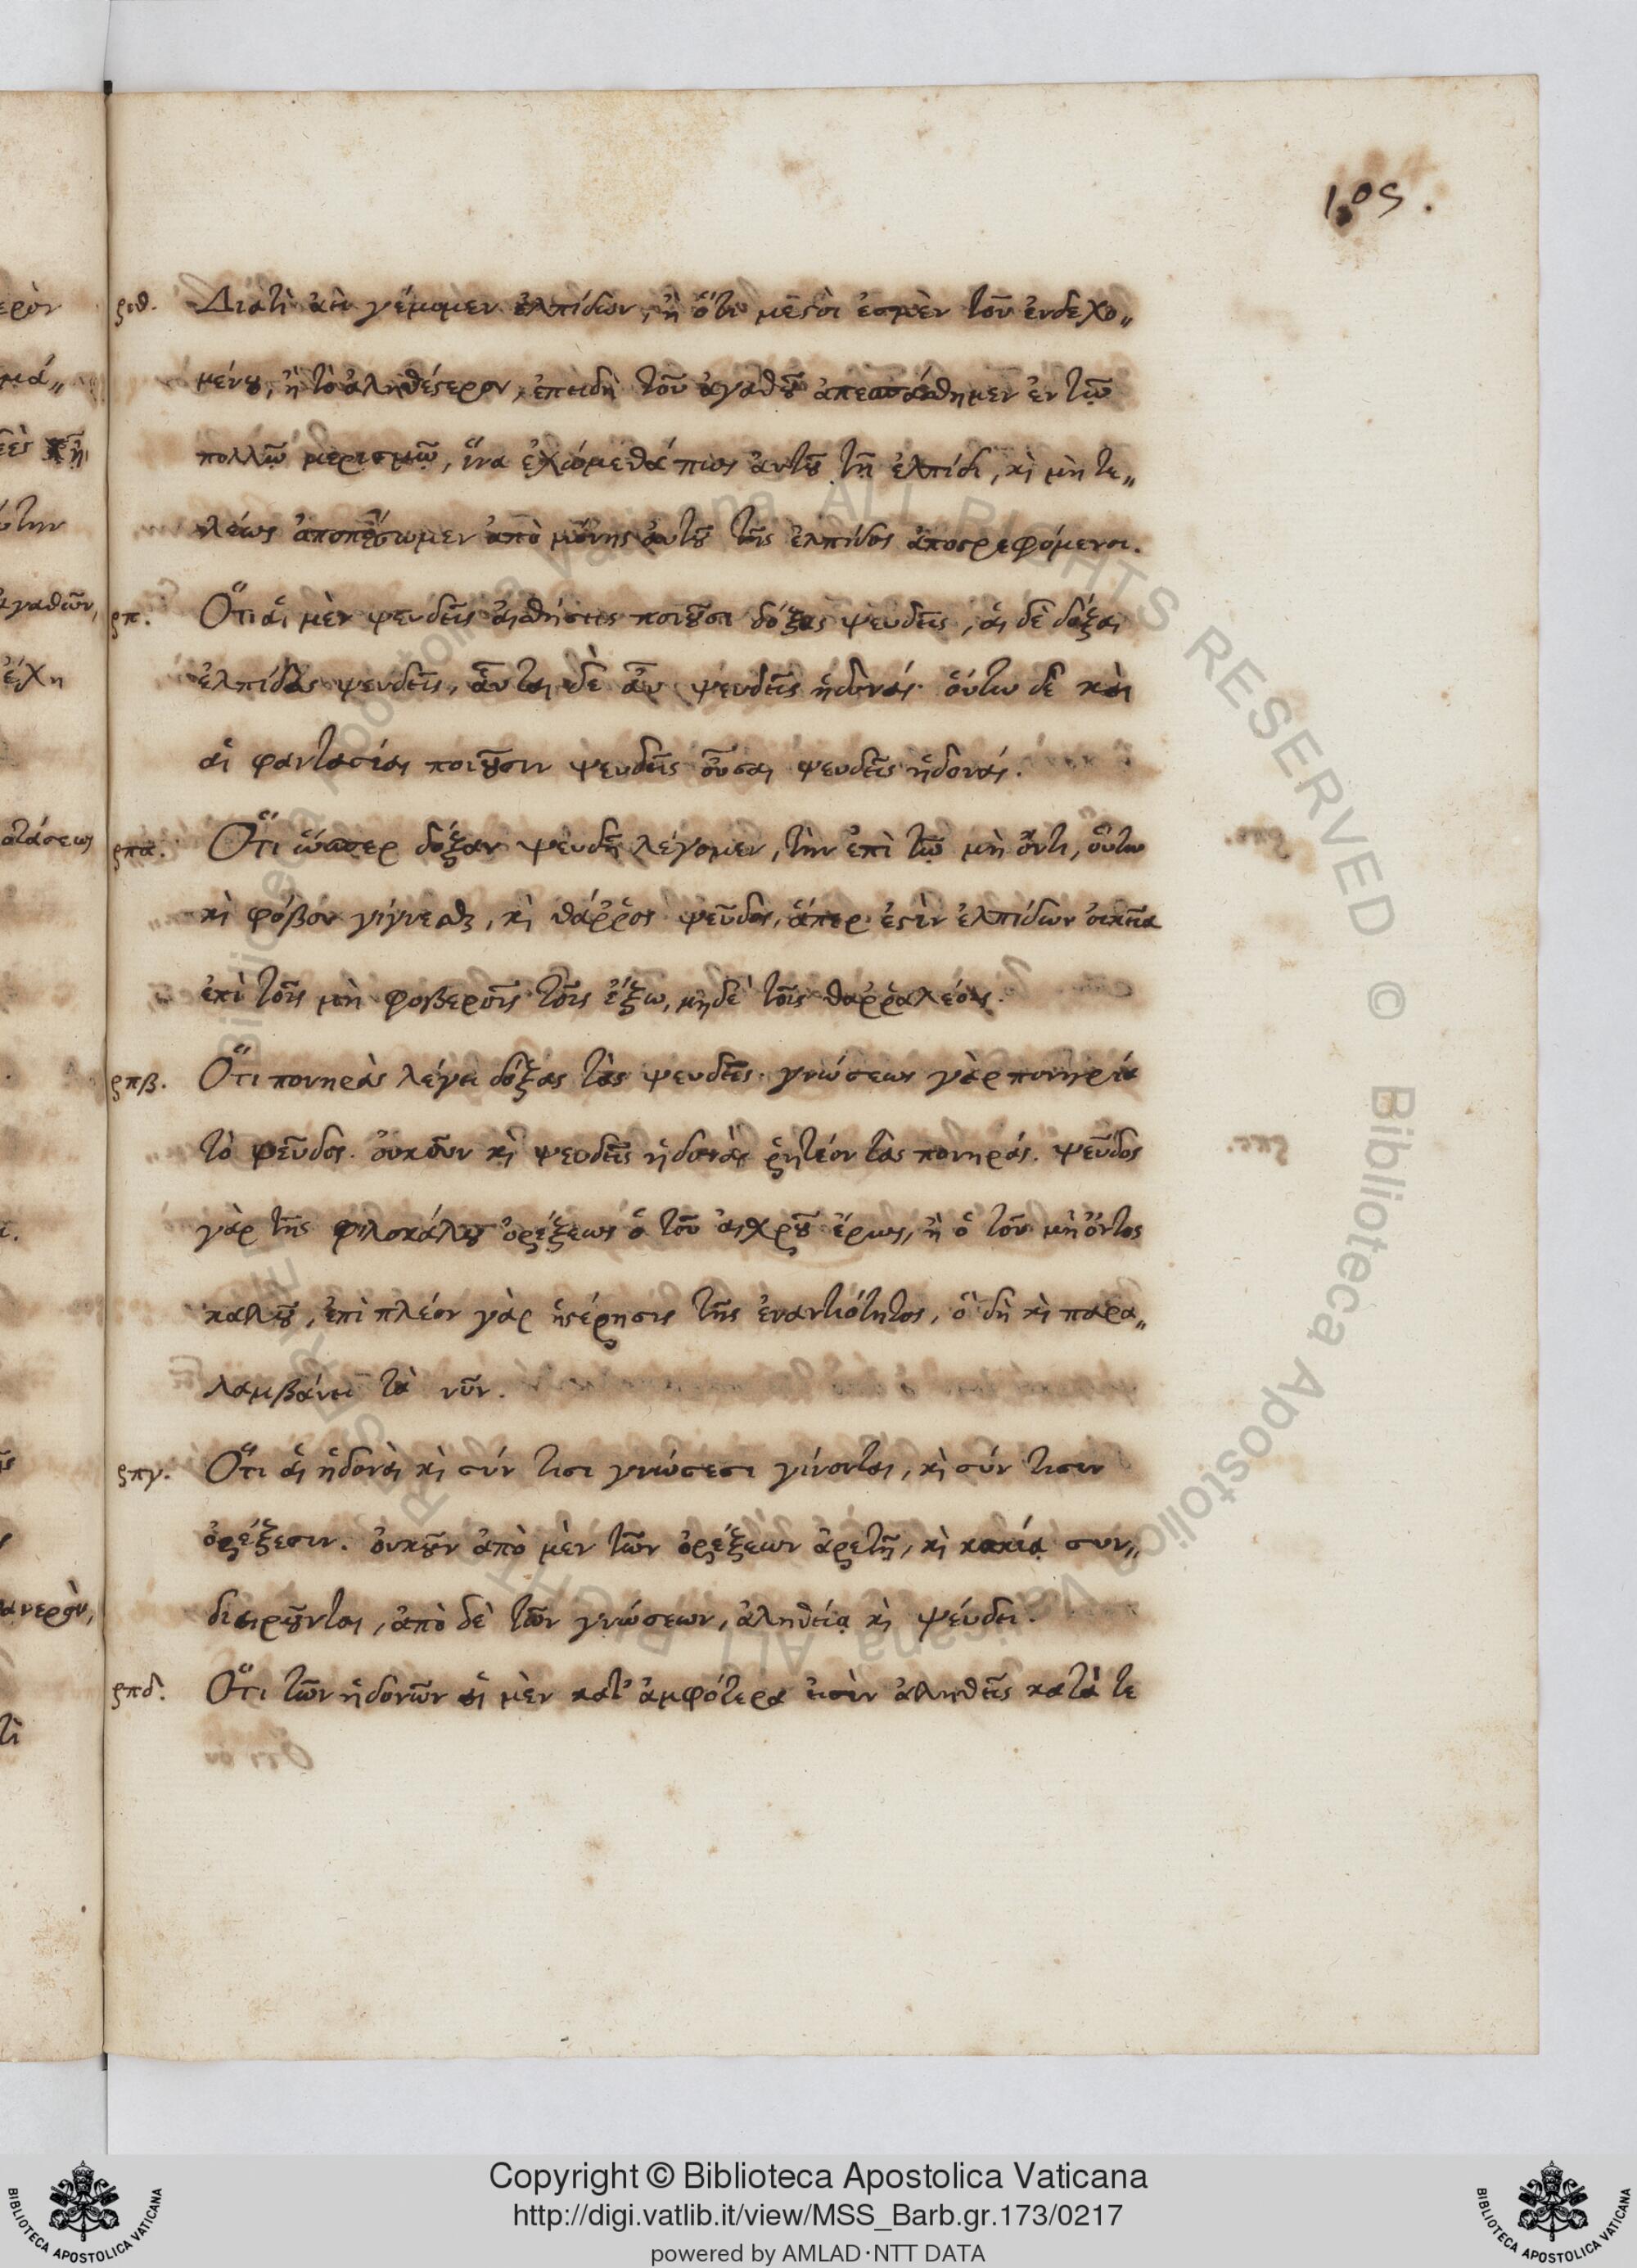 105.
ρоθ. Διατὶ ἀεὶ γέμομεν ἐλπίδων, ἢ ὅτι μεστοί ἐσμὲν τοῦ ἐνδεχο„
μένου, ἢ τὸ ἀληθέστερον, ἐπειδὴ τοῦ ἀγαθοῦ ἀπεσπάσθημεν ἐν τῷ
πολλῷ μερισμῷ, ἵνα ἐχώμεθά πως αὐτοῦ τῇ ἐλπίδι, κὶ μὴ τε„
λέως ἀποπέσωμεν ἀπὸ μόνης αὐτοῦ τῆς ἐλπίδος ἀποστρεφόμενοι.
ρπ. Ὅτι αἱ μὲν ψευδεῖς αἰσθήσεις ποιοῦσι δόξας ψευδεῖς, αἱ δὲ δόξαι
ἐλπίδας ψευδεῖς, αὗται δὲ αὖ ψευδεῖς ἡδονάς. οὕτω δὲ καὶ
αἱ φαντασίαι ποιοῦσιν ψευδεῖς οὖσαι ψευδεῖς ἡδονάς.
ρπα. Ὅτι ὥσπερ δόξαν ψευδῆ λέγομεν, τὴν ἐπὶ τῷ μὴ ὄντι, οὕτω
κὶ φόβον γίγνεσθαι, κὶ θάῤῥος ψεῦδος, ἅπερ ἐστὶν ἐλπίδων οἰκεῖα
ἐπὶ τοῖς μὴ φοβεροῖς τοῖς ἔξω, μηδὲ τοῖς θαῤῥαλέοις.
ρπβ. Ὅτι πονηρὰς λέγει δόξας τὰς ψευδεῖς. γνώσεως γὰρ πονηρία
τὸ ψεῦδος. οὐκοῦν κὶ ψευδεῖς ἡδονὰς ῥητέον τὰς πονηράς. ψεῦδος
γὰρ τῆς φιλοκάλου ὀρέξεως ὁ τοῦ αἰσχροῦ ἔρως, ἢ ὁ τοῦ μὴ ὄντος
καλοῦ, ἐπὶ πλέον γὰρ ἡ στέρησις τῆς ἐναντιότητος, ὃ δὴ κὶ παρα„
λαμβάνει τὰ νῦν.
ρπγ. Ὅτι αἱ ἡδοναὶ κὶ σύν τισι γνώσεσι γίνονται, κὶ σύν τισιν
ὀρέξεσιν. οὐκοῦν ἀπὸ μὲν τῶν ὀρέξεων ἀρετῇ, κὶ κακίᾳ συν„
διαιροῦνται, ἀπὸ δὲ τῶν γνώσεων, ἀληθείᾳ κὶ ψεύδει.
ρπδ. Ὅτι τῶν ἡδονῶν αἱ μὲν κατ' ἀμφότερα εἰσὶν ἀληθεῖς κατά τε
Copyright © Biblioteca Apostolica Vaticana
http://digi.vatlib.it/view/MSS_Barb.gr.173/0217
powered by AMLAD·NTT DATA
BIBLIOTECA APOSTOLICA VATICANA
BIBLIOTECA APOSTOLICA VATICANA